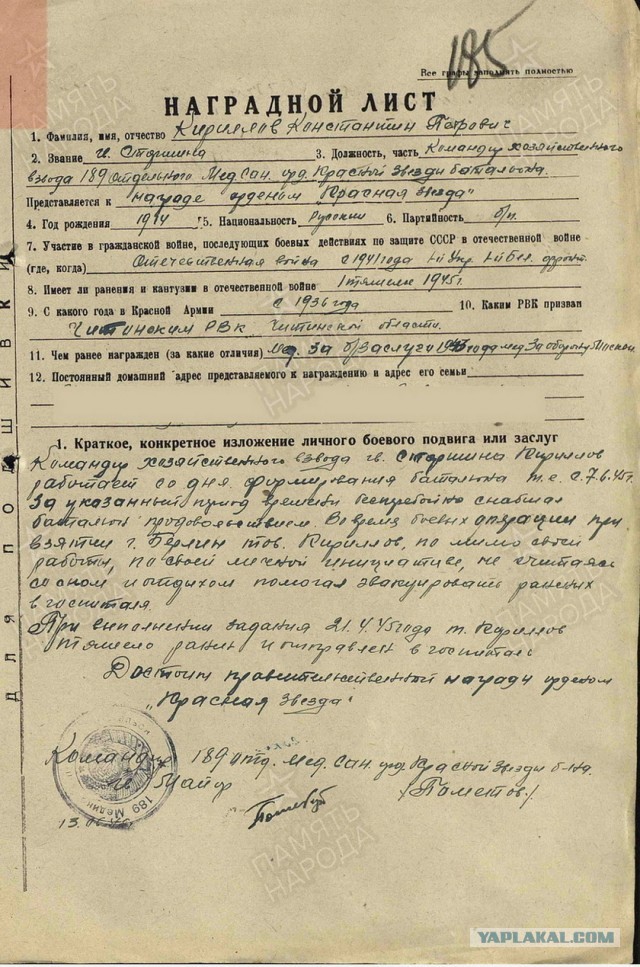 185
Все графы заполнять полностью
НАГРАДНОЙ ЛИСТ
1. Фамилия, имя, отчество Кириллов Константин Петрович
2. Звание гв. Старшина 3. Должность, часть Командир хозяйственного
взвода 189 отдельного Мед Сан. орд. Красной Звезды баталиона
Представляется к награде орденом "Красная звезда"
4. Год рождения 1914 5. Национальность Русский 6. Партийность б/п.
7. Участие в гражданской войне, последующих боевых действиях по защите СССР в отечественной войне
(где, когда) Отечественная война с 1941 года 1й Укр. 1й Бел. фронт.
8. Имеет ли ранения и кантузии в отечественной войне 1 тяжелое 1945г.
9. С какого года в Красной Армии с 1936 года 10. Каким РВК призван
Читинским РВК Читинской области.
11. Чем ранее награжден (за какие отличия) Мед. За б/заслуги 1943 года мед. За оборону Москвы
12. Постоянный домашний адрес представляемого к награждению и адрес его семьи
1. Краткое, конкретное изложение личного боевого подвига или заслуг
Командир хозяйственного взвода гв. старшина Кириллов
работает со дня формирования баталиона т.е. с 7.6.45г.
За указанный период времени бесперебойно снабжал
баталион продовольствием. Во время боевых операции при
взятии г. Берлин тов. Кириллов, по мимо своей
работы, по своей личной инициативе, не считаясь
со сном и отдыхом помогал эвакуировать раненых
в госпиталя.
При выполнении задания 21.4.45 года т. Кириллов
тяжело ранен и отправлен в госпиталь
Достоин правительственной награды орденом
"Красная звезда".
Командир 189 отд. Мед. Сан. орд. Красной Звезды б-на.
гв. Майор
/Пометов./
189 Медик
13.06.45г.
ДЛЯ ПОДШИВКИ
ПАМЯТЬ НАРОДА
YAPLAKAL.COM